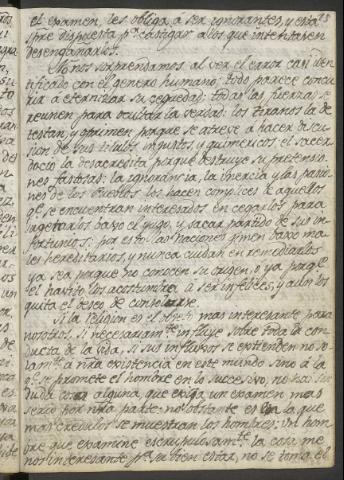 el examen, les obliga á ser ignorantes, y está
spre dispuesta pª castigar alos que intentasen
desengañarlos.
No nos sorprendamos al ver el error casi iden-
tificado con el genero humano; todo parece concu
rir á eternizar su ceguedad: todas las fuerzas se
reunen para ocultar la verdad: los tiranos la de
testan, y oprimen porque se atreve á hacer discu
sion de sus titulos injustos, y quimericos: el sacer
docio la desacredita porque destruye su pretensio
nes fastosas: la ignorancia, la inercia y las pasio
nes de los Pueblos los hacen complices de aquellos
qe se encuentran interesados en cegarlos para
sugetarlos baxo el yugo, y sacar partido de sus in
fortunios: por esto las naciones gimen baxo ma
les hereditarios, y nunca cuidan en remediarlos
ya sea porque no conocen su origen, o ya porqe
el habito los acostumbra á ser infelices, y aun los
quita el deseo de
Si la religion es el objeto mas interesante para
nosotros, si necesariamte influye sobre toda la con
ducta de la vida, si sus influxos se extienden no so
lamte á nra existencia en este mundo sino á la
qe se promete el hombre en lo succesivo, no hai sin
duda cosa alguna, que exija un examen mas
serio por nra parte: no obstante es en la que
mas credulos se muestran los hombres: un hom
bre que examine escrupulosamte la cosa me
nos interesante pª su bien estar, no se toma el